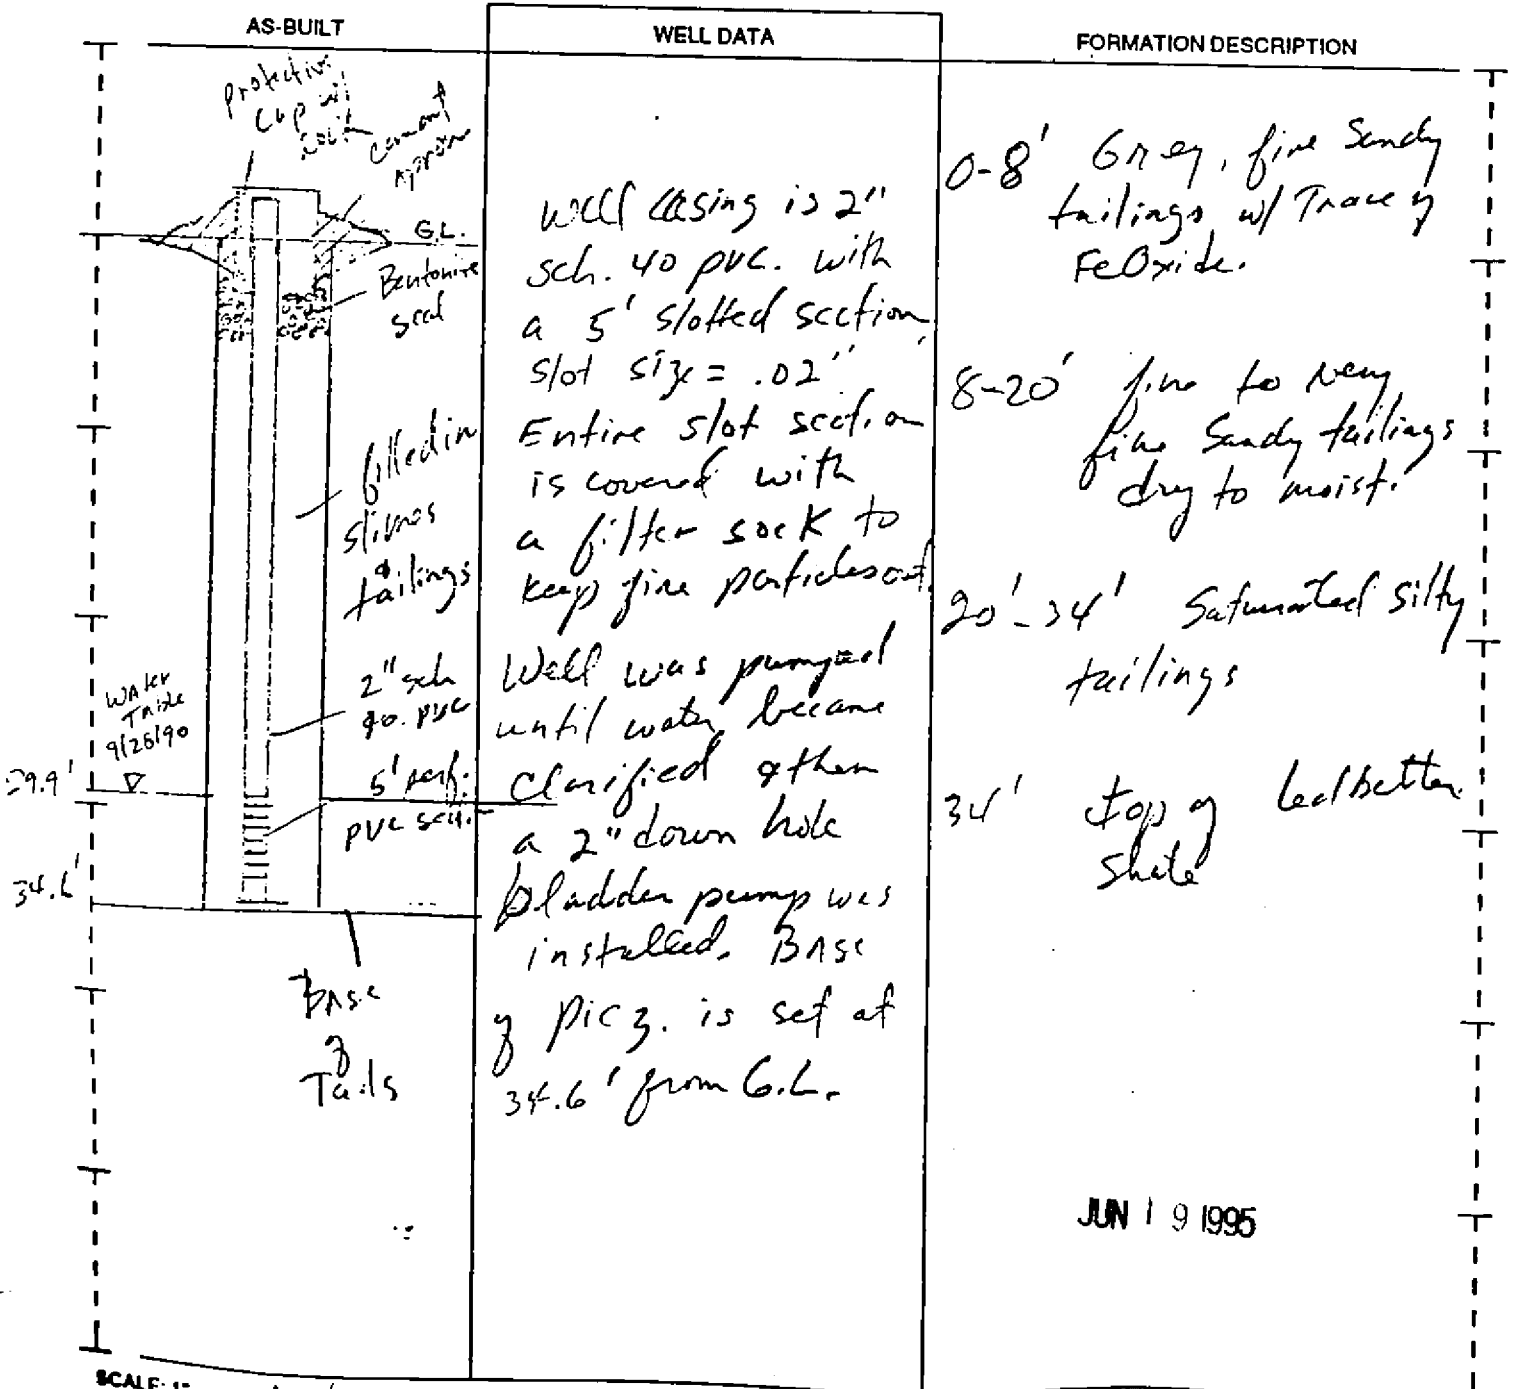 AS-BUILT
protective
cap w/
lock
cement
apron
G.L.
Bentonite
seal
filled in
slimes
&
tailings
2" sch
40. pvc
Water
Table
9/26/90
29.9'
5' perf.
pvc sch.
34.6'
Base
of
Tails
SCALE: 1"
WELL DATA
Well casing is 2"
sch. 40 pvc. with
a 5' slotted section,
slot size = .02"
Entire slot section
is covered with
a filter sock to
keep fine particles out.
Well was pumped
until water became
clarified & then
a 2" down hole
bladder pump was
installed. Base
of piez. is set at
34.6' from G.L.
FORMATION DESCRIPTION
0-8' Grey, fine Sandy
tailings w/ Trace of
Fe Oxide.
8-20' fine to very
fine Sandy tailings
dry to moist.
20'-34' Saturated silty
tailings
34' top of Ledbetter
Shale
JUN 19 1995